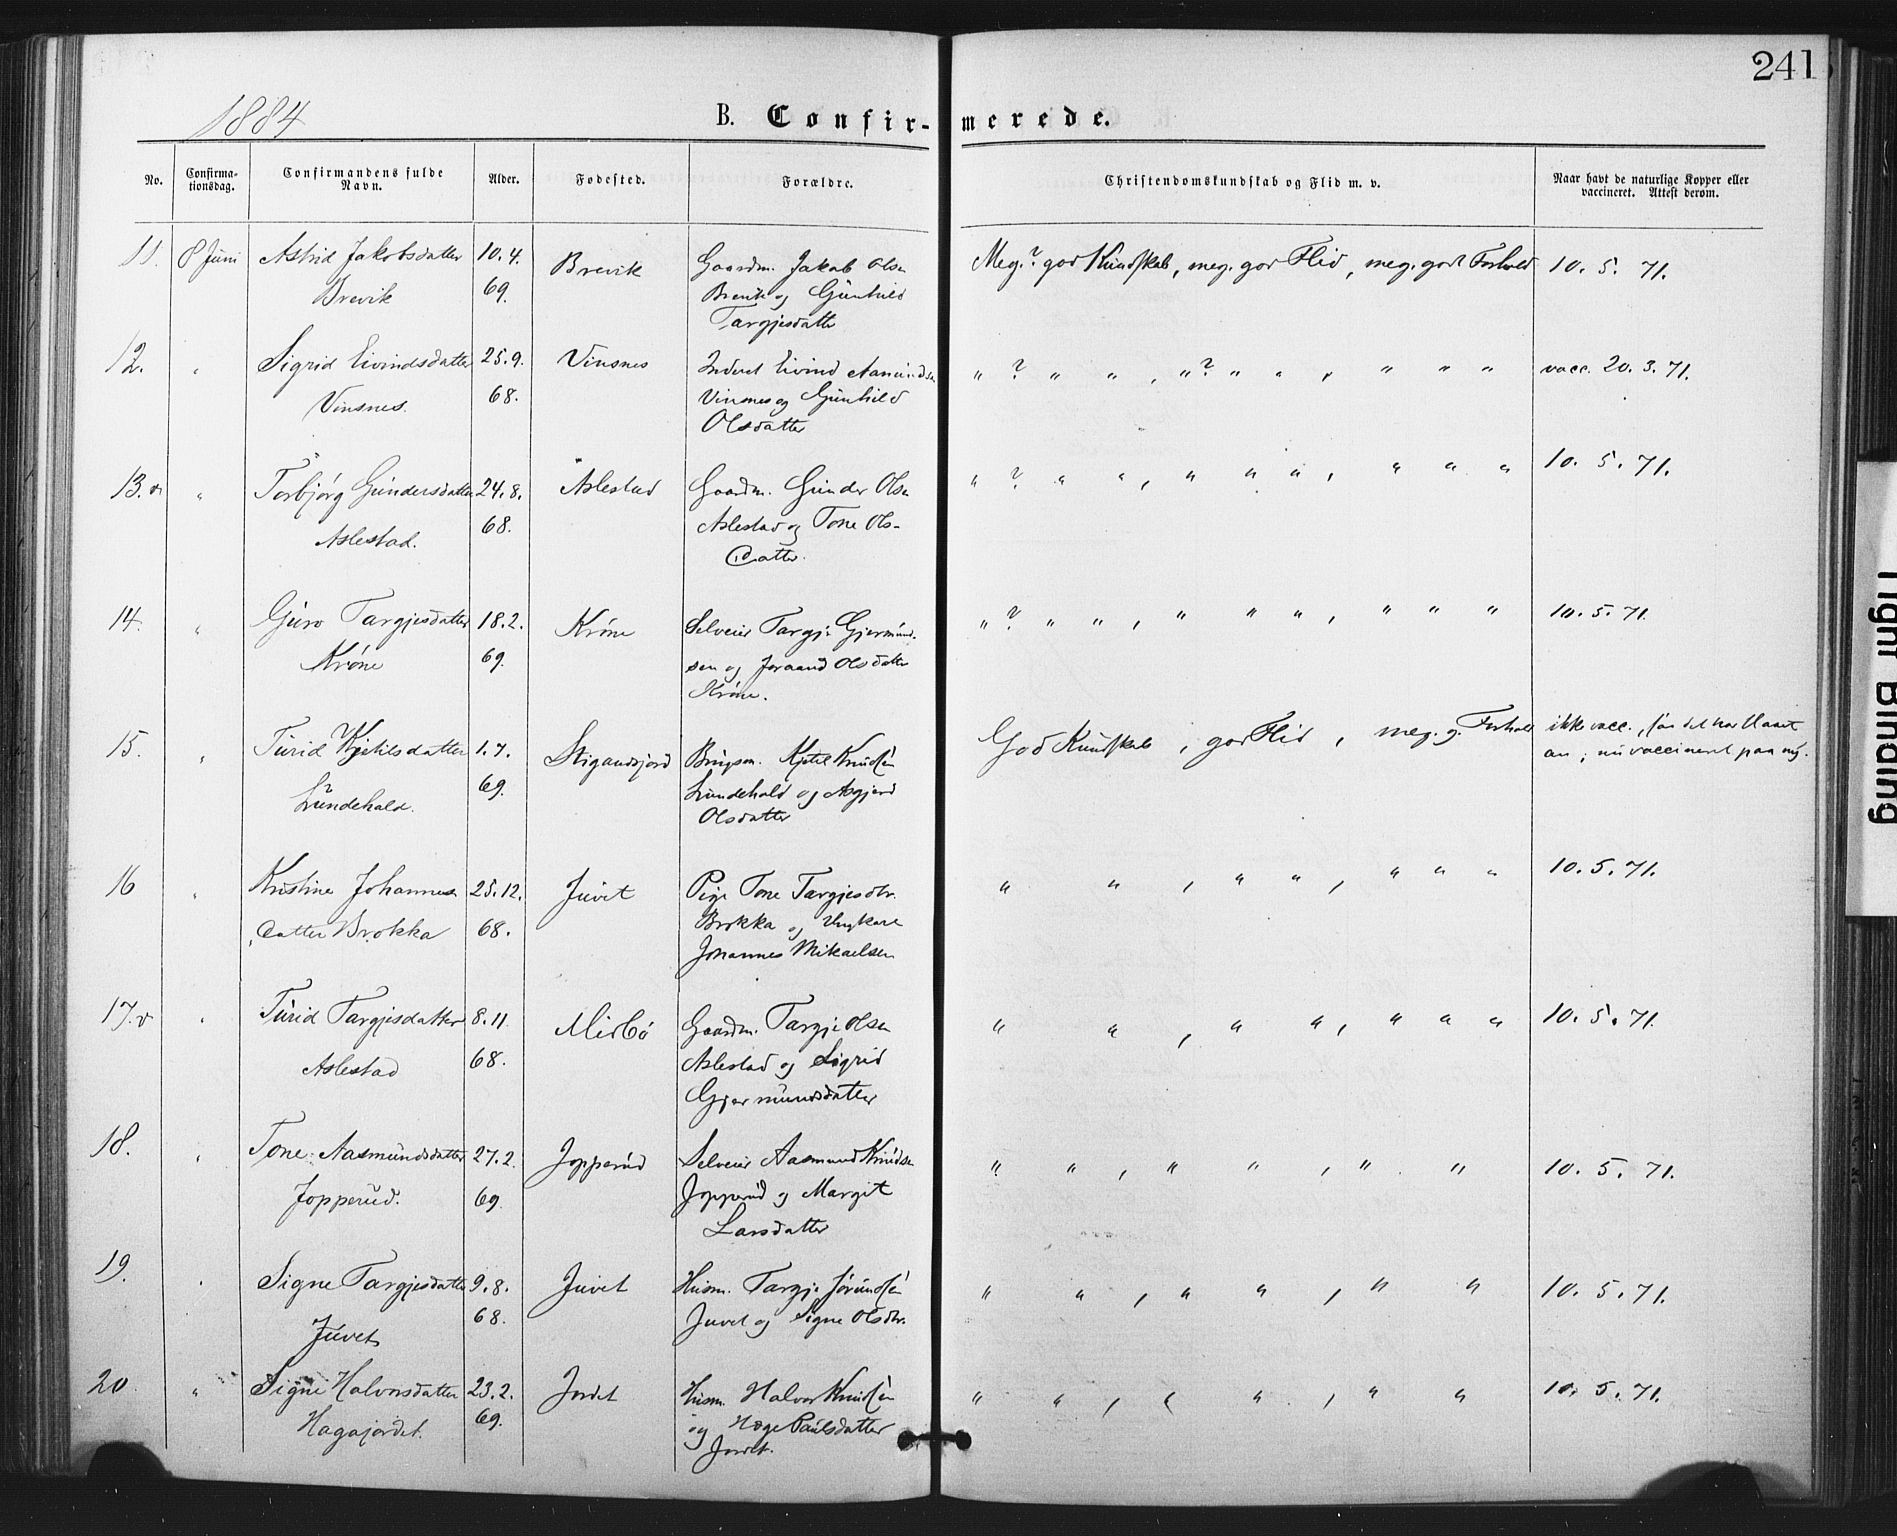 241
1884
B. Confir-merede.
No. Confirma-tionsdag. Confirmandens fulde Navn. Alder. Fødested. Forældre. Christendomskundskab og Flid m. v. Naar havt de naturlige Kopper eller vaccineret. Attest derom.
11. 8 Juni Astrid Jakobsdatter 10.4. Brevik Gaardm. Jakob Olsen Meg.? god Kundskab, meg. god Flid, meg. godt Forhold 10. 5. 71.
Brevik 69. Brevik og Gunhild
Targjesdatter
12. " Sigrid Eivindsdatter 25.9. Vinsnes Inderst Eivind Aamundsen " ? " " , " ? " " , " " " vacc. 20. 3. 71.
Vinsnes. 68. Vinsnes og Gunhild
Olsdatter
13. " Torbjørg Gundersdatter 24.8. Aslestad Gaardm. Gunder Olsen " ? " " , " " " , " " " 10. 5. 71.
Aslestad. 68. Aslestad og Tone Ols-
datter.
14. " Guro Targjesdatter 18.2. Krone Selveier Targje Gjermund- " ? " " , " " " , " " " 10. 5. 71.
Krone 69. sen og Joraand Olsdatter
Krone.
15. " Turid Kjetilsdatter 1.7. Stigandsjord Brugsm. Kjetil Knudsen God Kundskab, god Flid, meg. g. Forhold ikke vacc., før det har slaaet
Lundehald. 69. Lundehald og Asgjerd an; nu vaccineret paa ny.
Olsdatter
16 " Kristine Johannes- 25.12. Juvet Pige Tone Targjesdtr. " " , " " , " " " 10. 5. 71.
datter Brokka 68. Brokka og Ungkarl
Johannes Mikaelsen
17. v " Turid Targjesdatter 8.11. Midbø Gaardm. Targje Olsen " " , " " , " " " 10. 5. 71.
Aslestad 68. Aslestad og Sigrid
Gjermundsdatter
18. " Tone Aasmundsdatter 27.2. Jopperud Selveier Aasmund Knudsen " " , " " , " " 10. 5. 71.
Jopperud. 69. Jopperud og Margit
Larsdatter
19. " Signe Targjesdatter 9.8. Juvet Husm. Targje Jørundsen " " , " " , " " 10. 5. 71.
Juvet 68. Juvet og Signe Olsdtr.
20 " Signe Halvorsdatter 23.2. Jordet Husm. Halvor Knudsen " " , " " , " " 10. 5. 71.
Hagajordet. 69. og Hæge Paulsdatter
Jordet.
Tight Binding